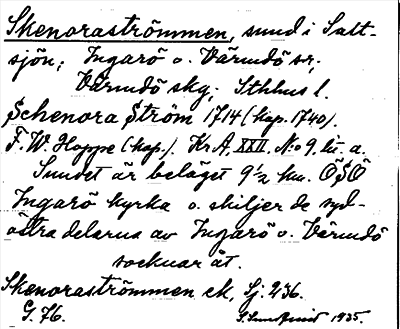 Skenoraströmmen, sund i Salt-
sjön; Ingarö o. Värmdö sr;
Värmdö skg; Sthlms l.
Schenora Ström 1714 (kop. 1740).
F. W. Hoppe (kop.). Kr A, XXII, N:o 9, lit. a.
Sundet är beläget 9 1/2 km. ÖSÖ
Ingarö kyrka o. skiljer de syd-
östra delarna av Ingarö o. Värmdö
socknar åt.
Skenoraströmmen ek, Sj. 236.
G. 76. 1935.